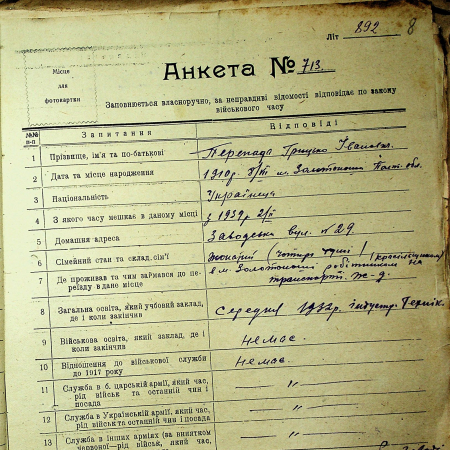 Літ 892 8
Місце
для
фотокартки
Анкета № 713.
Заповнюється власноручно, за неправдиві відомості відповідає по закону
військового часу
№№ п-п Запитання Відповіді
1 Прізвище, ім'я та по-батькові Перепада Грицько Іванович.
2 Дата та місце народження 1910р. м. Золотоноша Полт. обл.
3 Національність Українець
4 З якого часу мешкає в даному місці з 1939р.
5 Домашня адреса Заводська вул. № 29
6 Сімейний стан та склад сім'ї жонатий (чотири душі)
7 Де проживав та чим займався до пе-
реїзду в дане місце в м. Золотоноші робітником на
транспорті. ж-д.
8 Загальна освіта, який учбовий заклад,
де і коли закінчив Середня 1932р. індустр.
9 Військова освіта, який заклад, де і
коли закінчив немає.
10 Відношення до військової служби
до 1917 року немає.
11 Служба в б. царській армії, який час,
рід військ та останній чин і
посада — „ —
12 Служба в Українській армії, який час,
рід військ та останній чин і посада — „ —
13 Служба в інших арміях (за винятком
червоної—рід військ, який час, — „ —